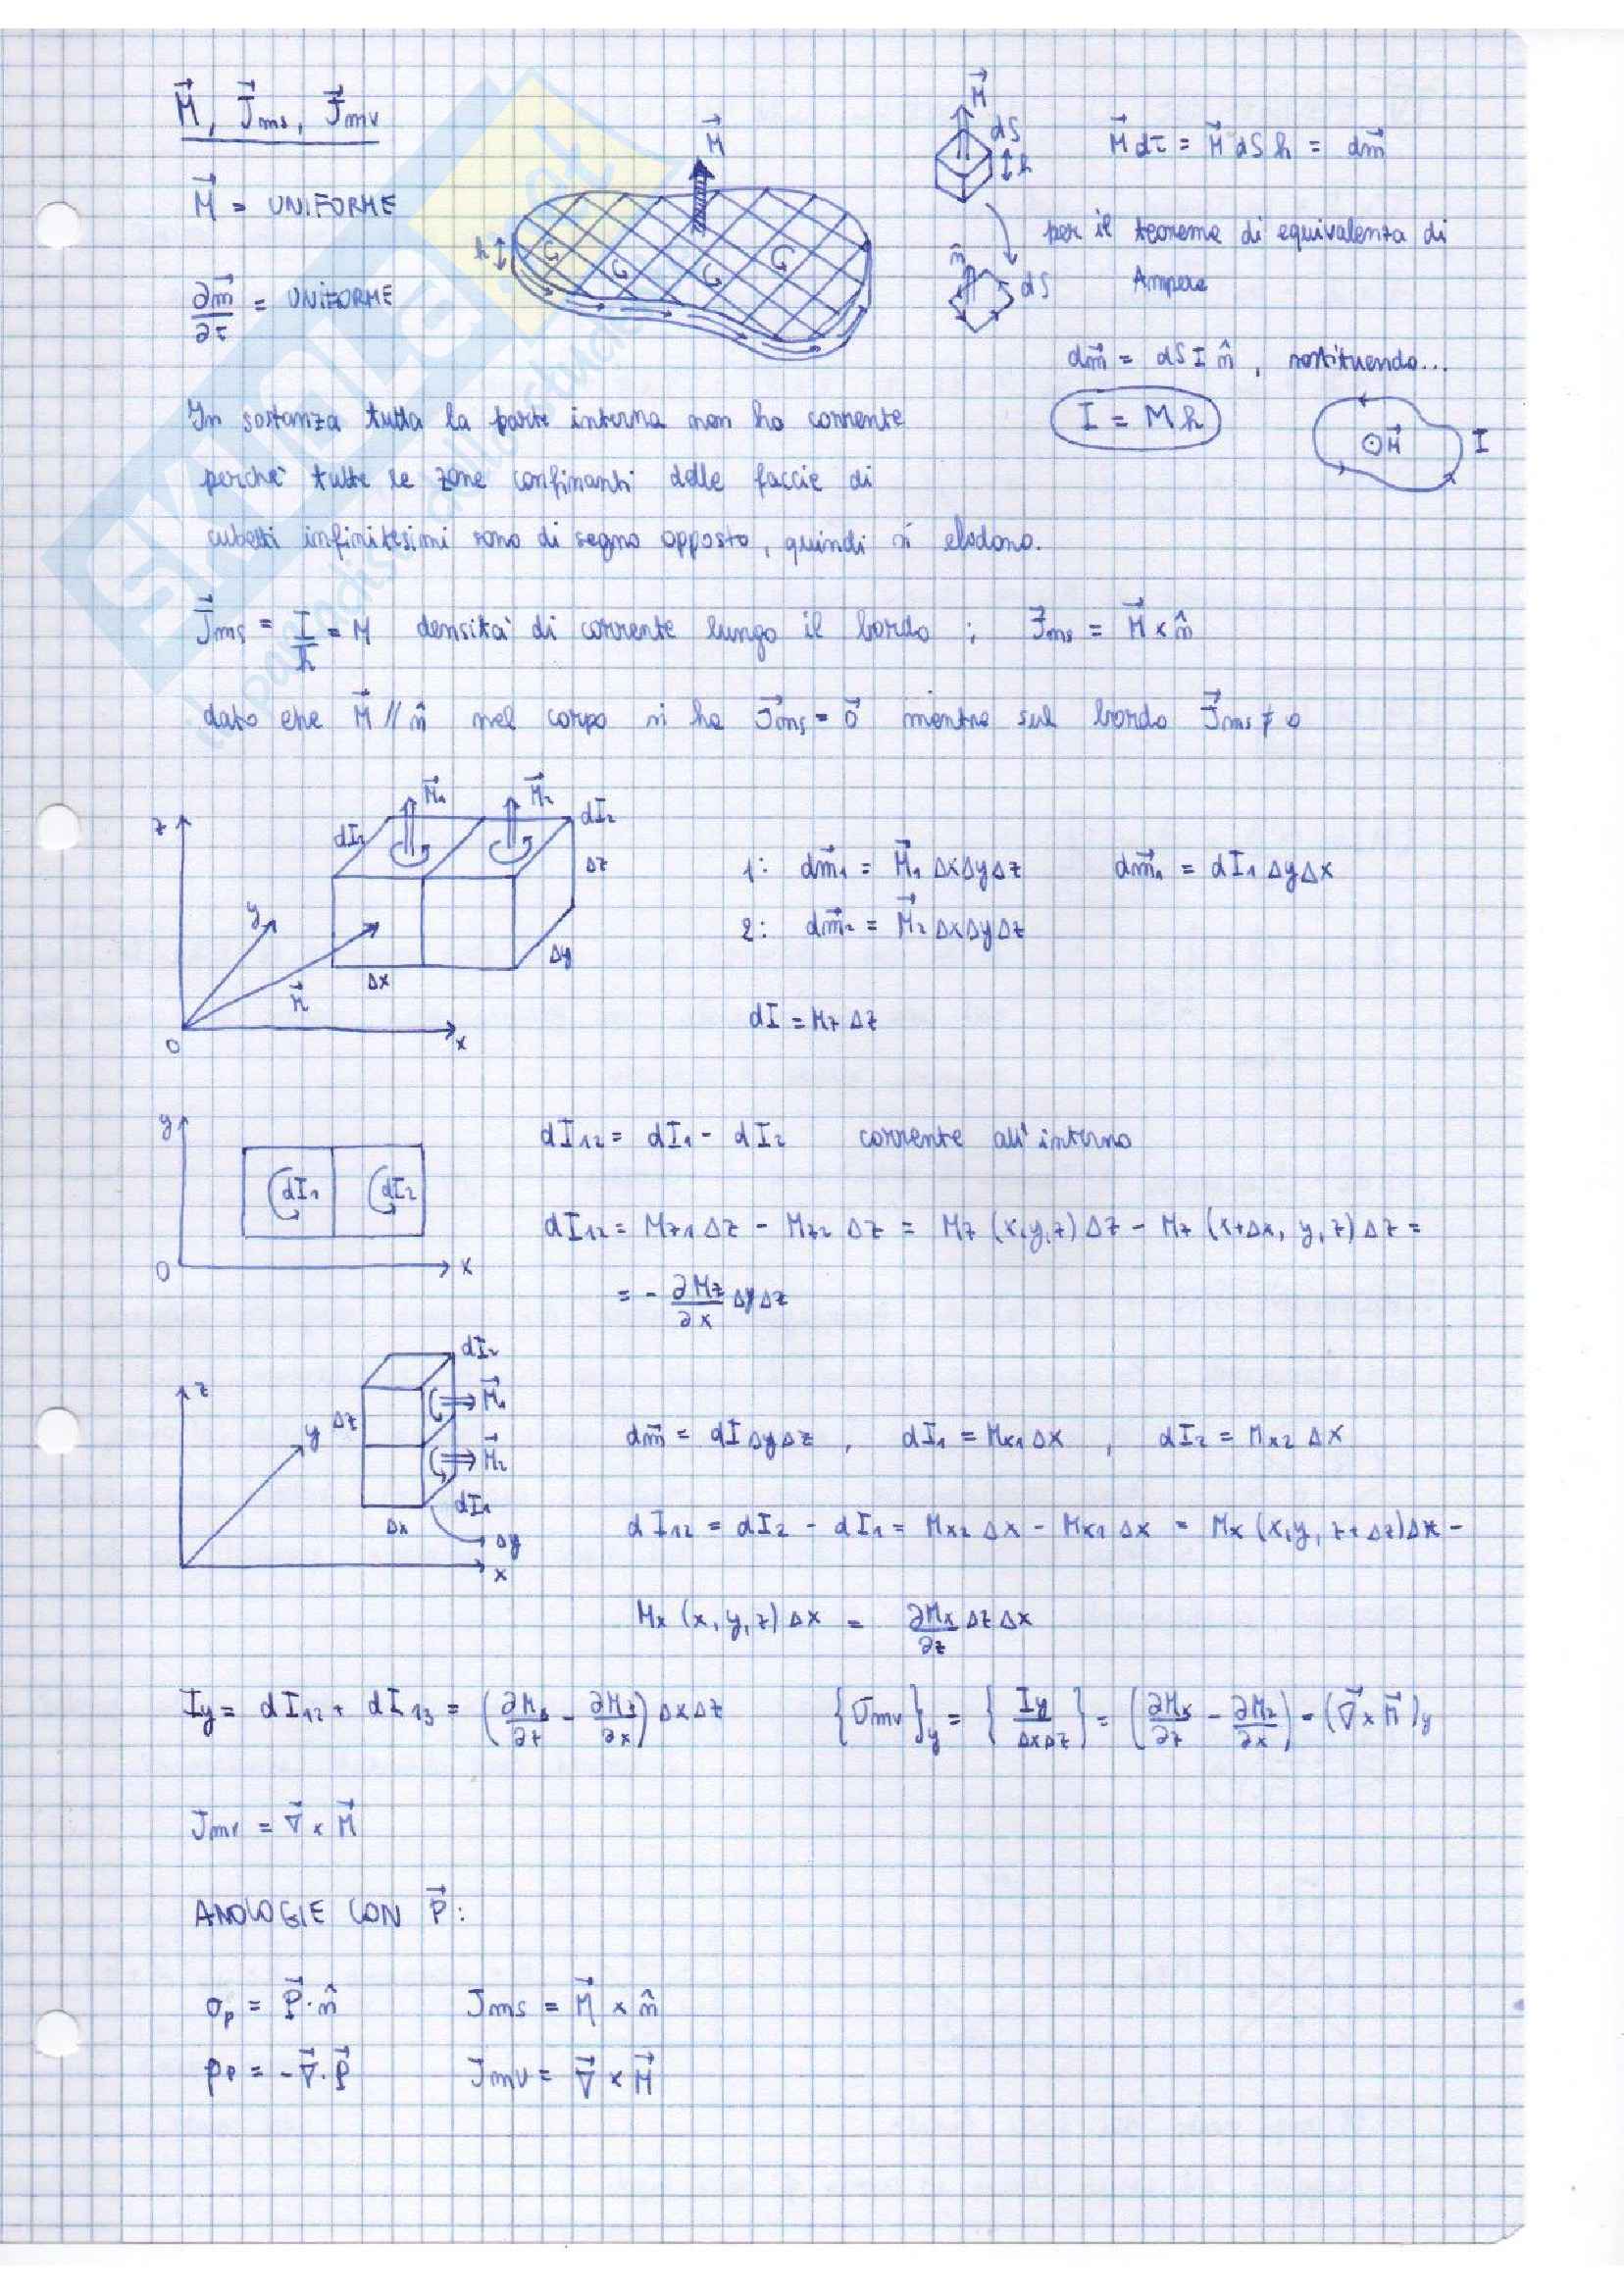 M⃗, J⃗ms, J⃗mv
M⃗ = UNIFORME
∂m⃗/∂τ = UNIFORME
h
M⃗
M⃗
dS
h
n̂
dS
M⃗ dτ = M⃗ dS h = dm⃗
per il teorema di equivalenza di
Ampere
dm⃗ = dS I n̂ , sostituendo...
I = M h
⊙M⃗
I
In sostanza tutta la parte interna non ha corrente
perchè tutte le zone confinanti delle faccie di
cubetti infinitesimi sono di segno opposto, quindi si elidono.
J⃗ms = I/h = M densità di corrente lungo il bordo ; J⃗ms = M⃗ × n̂
dato che M⃗ // n̂ nel corpo si ha J⃗ms = 0⃗ mentre sul bordo J⃗ms ≠ 0
z
y
x
0
M⃗1
M⃗2
dI1
dI2
Δz
Δy
Δx
r⃗
1: dm⃗1 = M⃗1 ΔxΔyΔz dm⃗1 = dI1 ΔyΔx
2: dm⃗2 = M⃗2 ΔxΔyΔz
dI = Mz Δz
y
0
x
dI1
dI2
dI12 = dI1 - dI2 corrente all'interno
dI12 = Mz1 Δz - Mz2 Δz = Mz (x,y,z) Δz - Mz (x+Δx, y, z) Δz =
= - ∂Mz/∂x ΔxΔz
z
y
x
dI2
M⃗1
M⃗2
dI1
Δz
Δx
Δy
dm⃗ = dI ΔyΔz , dI1 = Mx1 Δx , dI2 = Mx2 Δx
dI12 = dI2 - dI1 = Mx2 Δx - Mx1 Δx = Mx (x,y, z+Δz)Δx -
Mx (x,y,z) Δx = ∂Mx/∂z ΔzΔx
Iy = dI12 + dI13 = (∂Mx/∂z - ∂Mz/∂x) ΔxΔz {Jmv}y = {Iy/ΔxΔz} = (∂Mx/∂z - ∂Mz/∂x) = (∇⃗ × M⃗)y
Jmv = ∇⃗ × M⃗
ANOLOGIE CON P⃗:
σp = P⃗·n̂ Jms = M⃗ × n̂
ρp = -∇⃗·P⃗ Jmv = ∇⃗ × M⃗